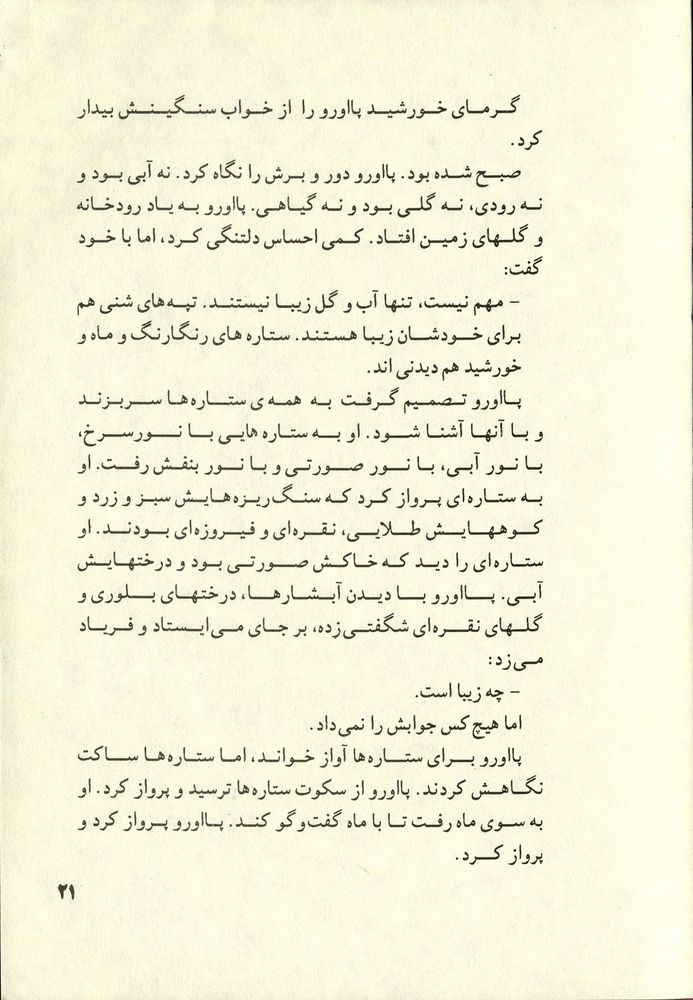 گرمای خورشید پااورو را از خواب سنگینش بیدار
کرد.
صبح شده بود. پااورو دور و برش را نگاه کرد. نه آبی بود و
نه رودی، نه گلی بود و نه گیاهی. پااورو به یاد رودخانه
و گلهای زمین افتاد. کمی احساس دلتنگی کرد، اما با خود
گفت:
– مهم نیست، تنها آب و گل زیبا نیستند. تپه‌های شنی هم
برای خودشان زیبا هستند. ستاره های رنگارنگ و ماه و
خورشید هم دیدنی اند.
پااورو تصمیم گرفت به همه ی ستاره‌ها سربزند
و با آنها آشنا شود. او به ستاره هایی با نورسرخ،
با نور آبی، با نور صورتی و با نور بنفش رفت. او
به ستاره‌ای پرواز کرد که سنگ‌ریزه‌هایش سبز و زرد و
کوههایش طلایی، نقره‌ای و فیروزه‌ای بودند. او
ستاره‌ای را دید که خاکش صورتی بود و درختهایش
آبی. پااورو با دیدن آبشارها، درختهای بلوری و
گلهای نقره‌ای شگفتی‌زده، بر جای می‌ایستاد و فریاد
می‌زد:
– چه زیبا است.
اما هیچ کس جوابش را نمی‌داد.
پااورو برای ستاره‌ها آواز خواند، اما ستاره‌ها ساکت
نگاهش کردند. پااورو از سکوت ستاره‌ها ترسید و پرواز کرد. او
به سوی ماه رفت تا با ماه گفت‌وگو کند. پااورو پرواز کرد و
پرواز کرد.
۲۱